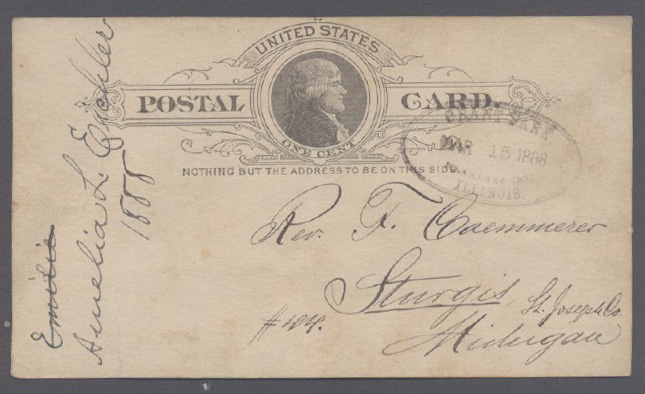 UNITED STATES
POSTAL CARD.
ONE CENT
NOTHING BUT THE ADDRESS TO BE ON THIS SIDE
GRANT PARK
MAR 15 1888
ILLINOIS.
Rev. F. Caemmerer
Sturgis, St. Joseph Co.
Michigan
Emilie
Amelia L. Eichler
1888